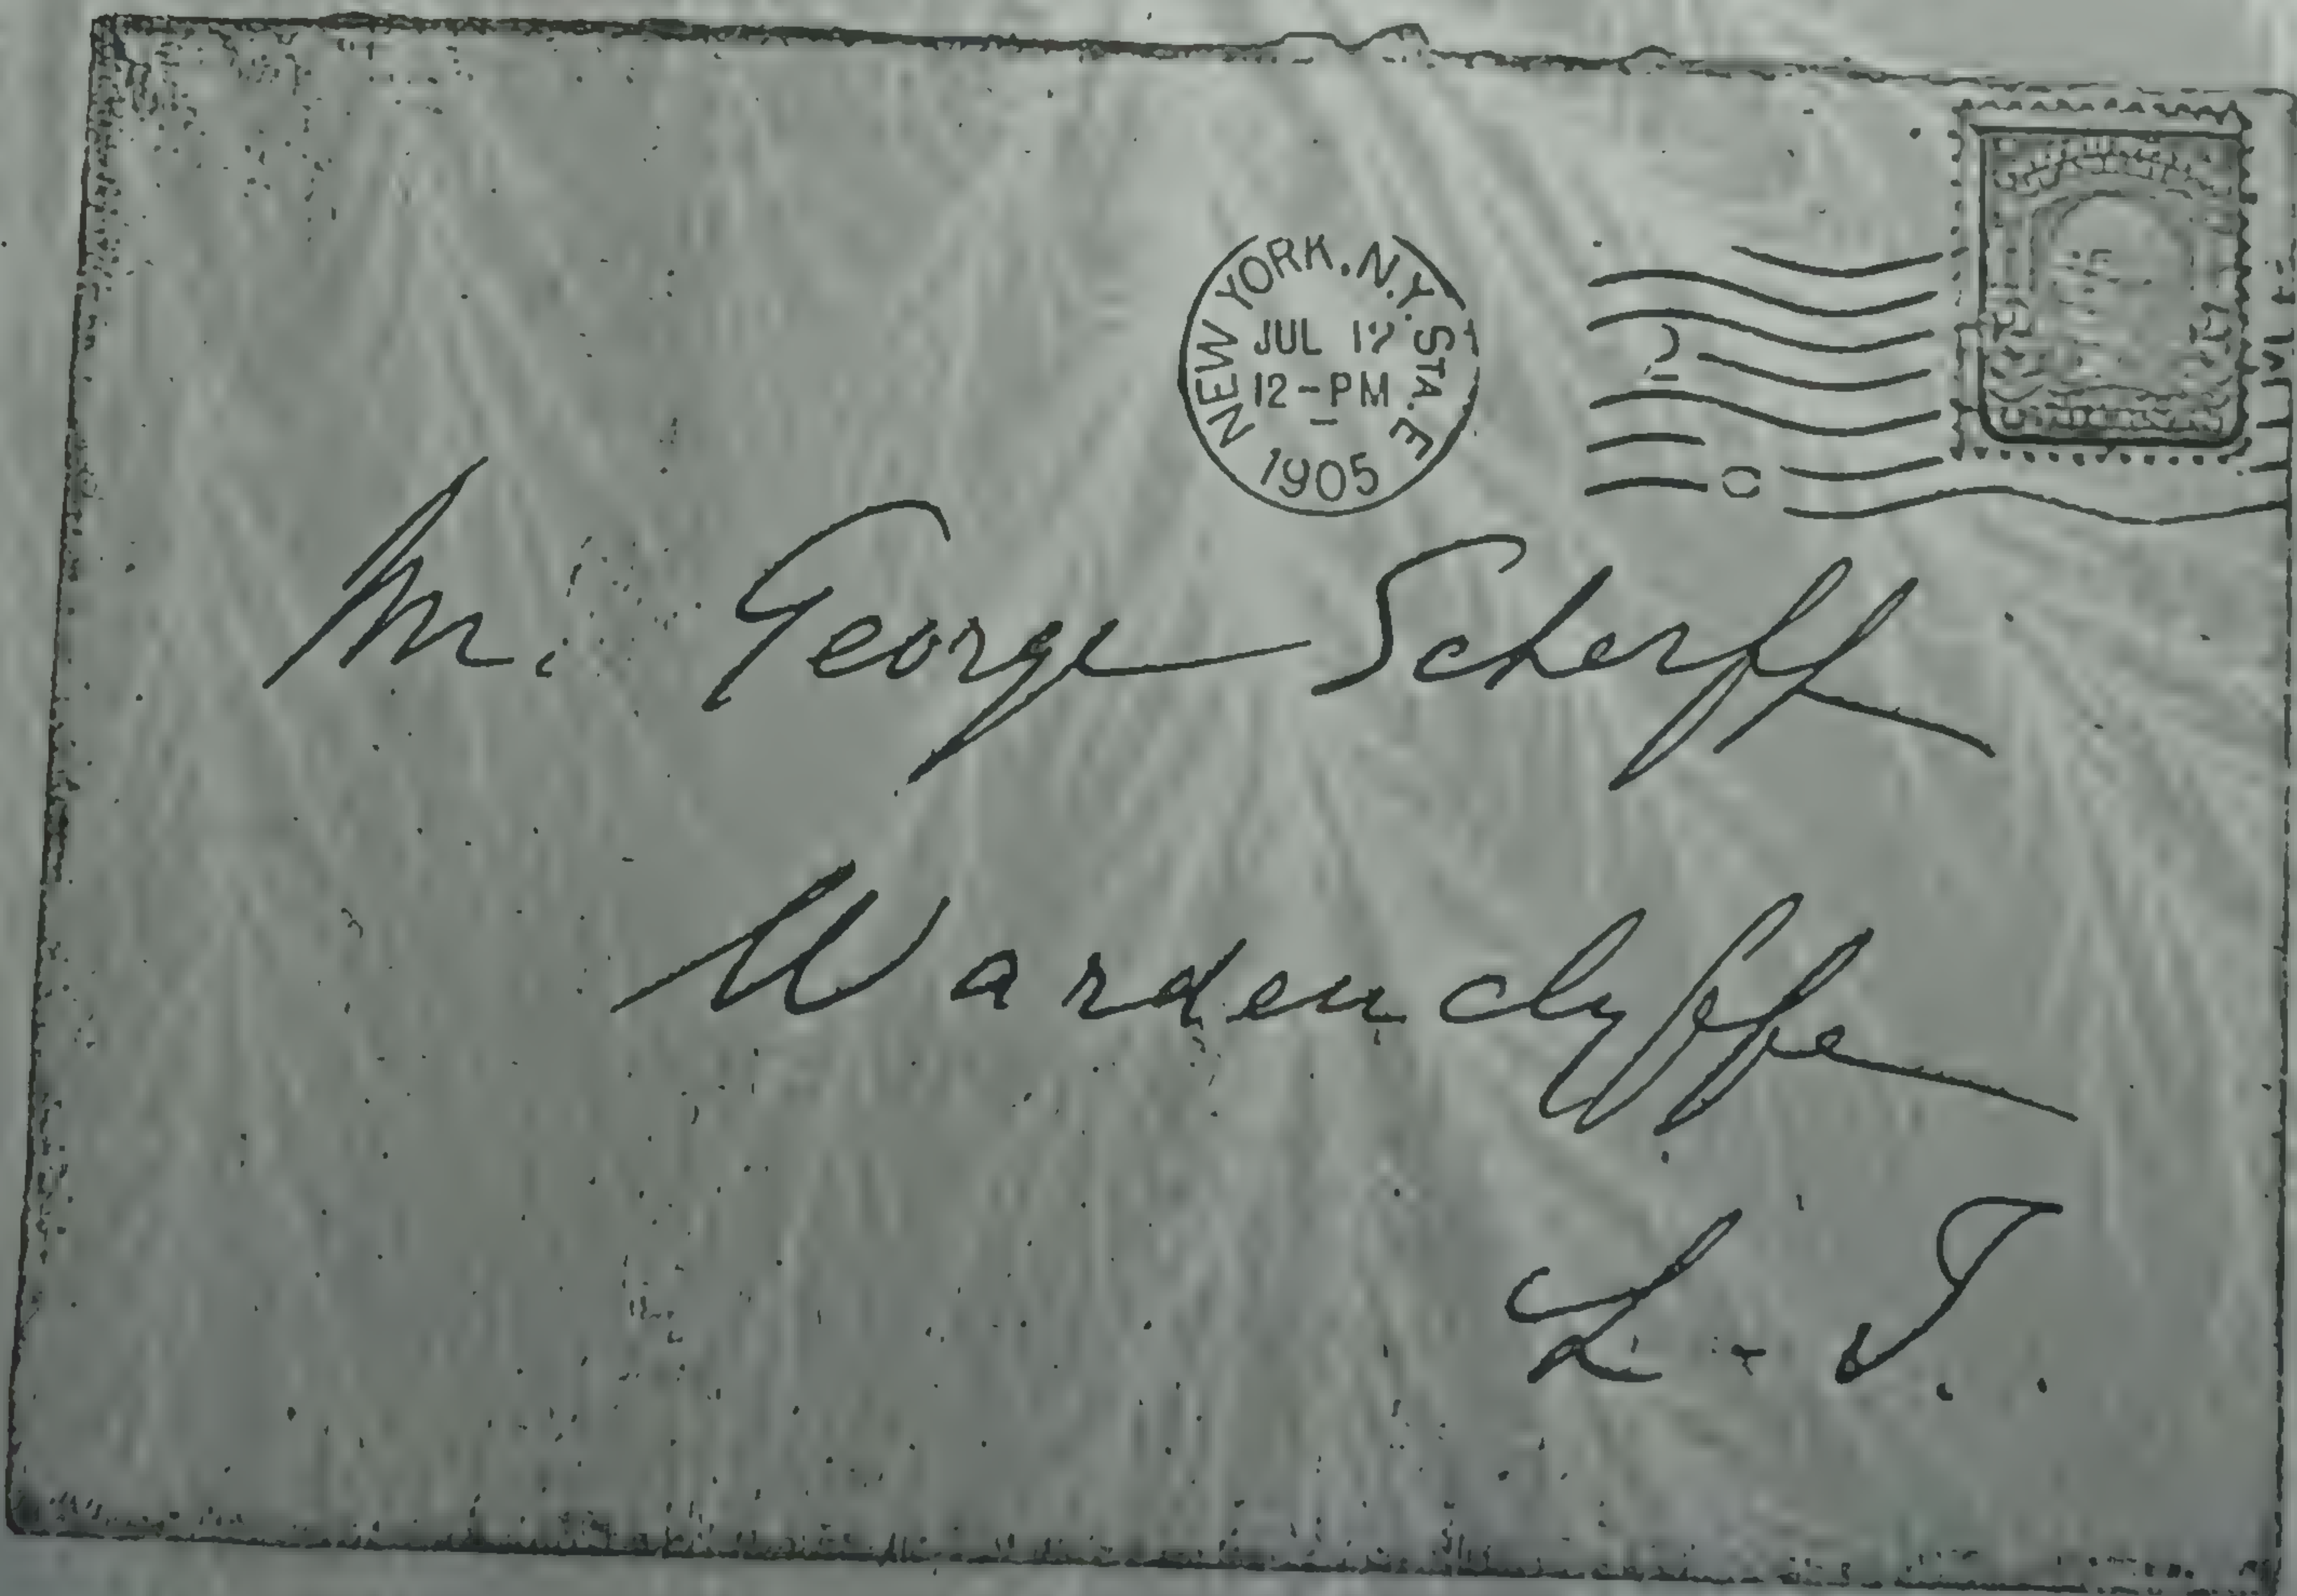 NEW YORK, N.Y. STA. E
JUL 12
12-PM
1905
Mr. George Scherff
Wardenclyffe
L. I.